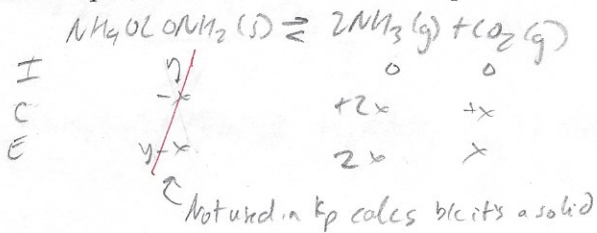 NH4OCONH2 (s) ⇌ 2NH3 (g) + CO2 (g)
I y 0 0
C -x +2x +x
E y-x 2x x
Not used in Kp calcs b/c it's a solid